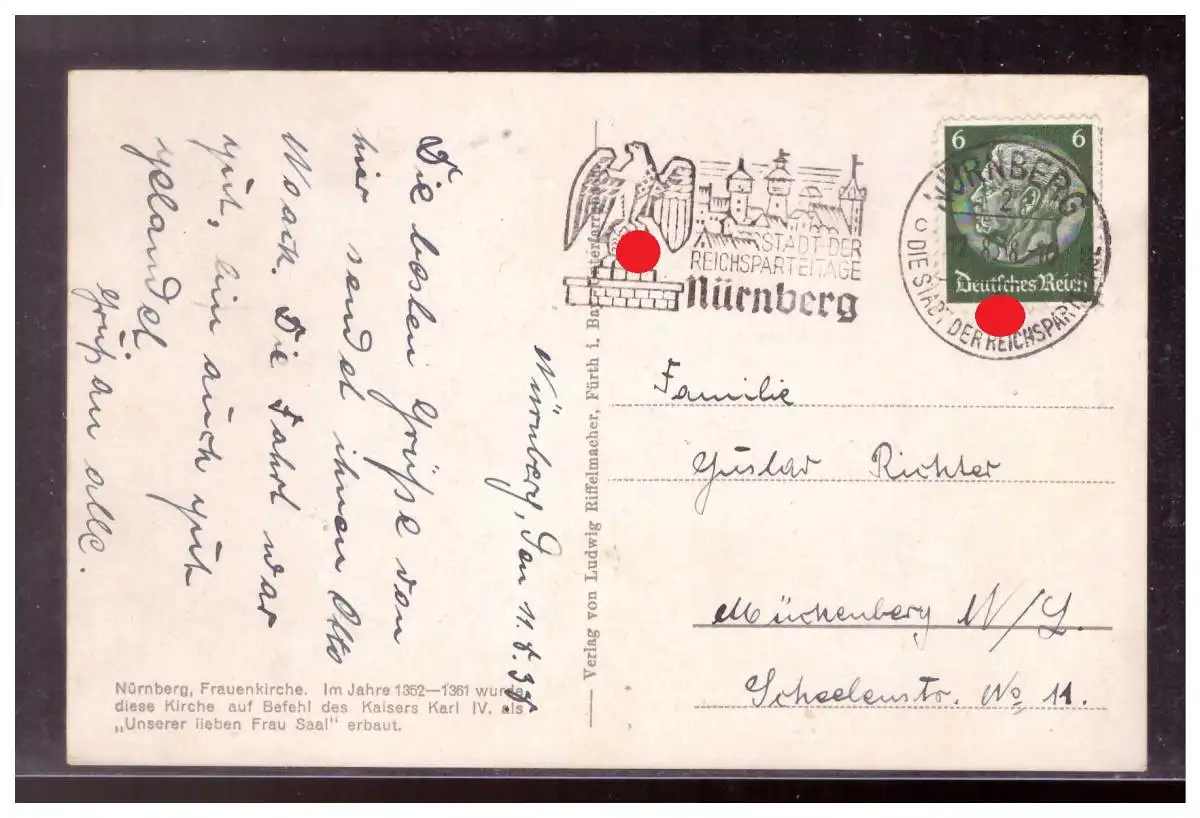 Nürnberg, den 11.8.38
Die besten Grüße von
hier sendet ihnen Otto
Noack. Die Fahrt war
gut, bin auch gut
gelandet.
Gruß an alle.
Nürnberg, Frauenkirche. Im Jahre 1352—1361 wurde
diese Kirche auf Befehl des Kaisers Karl IV. als
„Unserer lieben Frau Saal" erbaut.
Verlag von Ludwig Riffelmacher, Fürth i. Bay.
STADT DER
REICHSPARTEITAGE
Nürnberg
6 6
Deutsches Reich
NÜRNBERG
2
DIE STADT DER REICHSPARTEITAGE
Familie
Gustav Richter
Mückenberg N/L.
Scheelenstr. No 11.